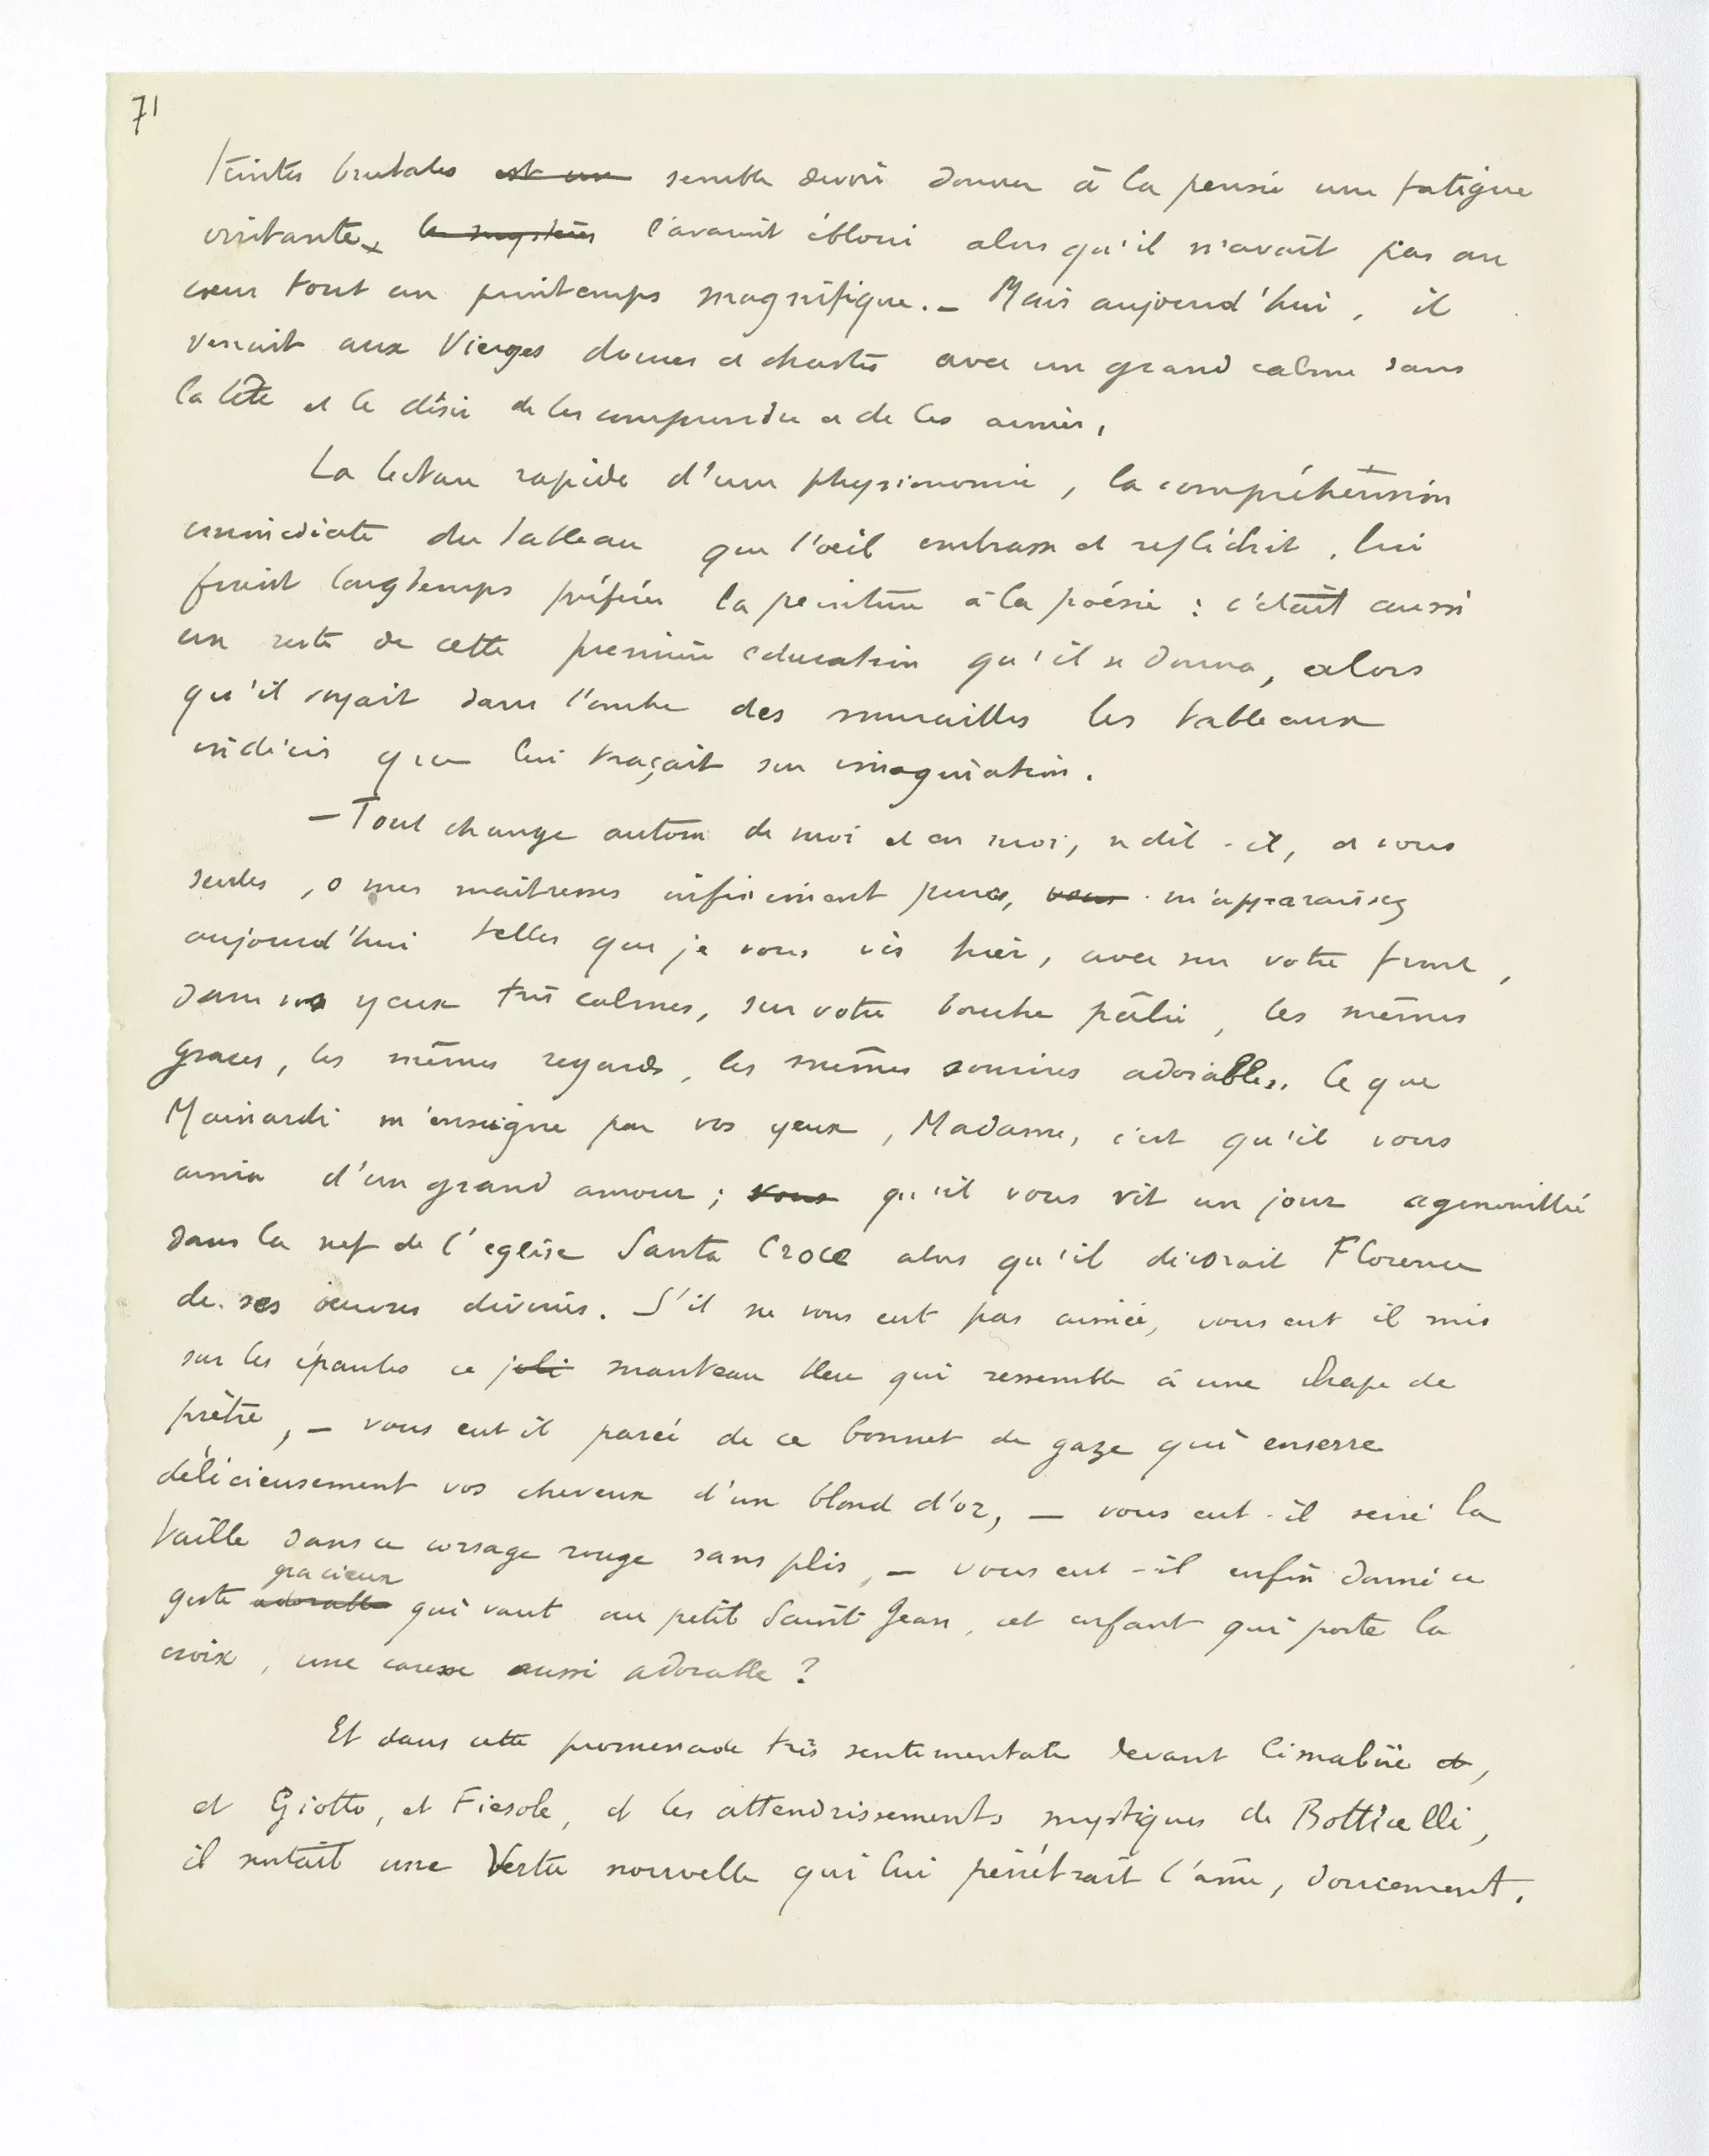 71
teintes brutales est un semble devoir donner à la pensée une fatigue
irritante, les mystères l'avaient ébloui alors qu'il n'avait pas au
cœur tout un printemps magnifique. – Mais aujourd'hui, il
venait aux Vierges douces et chastes avec un grand calme dans
la tête et le désir de les comprendre et de les aimer,
La lecture rapide d'une physionomie, la compréhension
immédiate du tableau que l'oeil embrasse et réfléchit, lui
firent longtemps préférer la peinture à la poésie : c'était aussi
un reste de cette première éducation qu'il se donna, alors
qu'il voyait dans l'ombre des murailles les tableaux
indécis que lui traçait son imagination.
– Tout change autour de moi et en moi, se dit-il, et vous
seules, o mes maîtresses infiniment pures, vous m'apparaissez
aujourd'hui telles que je vous vis hier, avec sur votre front,
dans vos yeux très calmes, sur votre bouche pâlie, les mêmes
graces, les mêmes regards, les mêmes sourires adorables. Ce que
Mainardi m'enseigne par vos yeux, Madame, c'est qu'il vous
aima d'un grand amour ; vous qu'il vous vit un jour agenouillée
dans la nef de l'eglise Santa Croce alors qu'il décorait Florence
de ses oeuvres divines. S'il ne vous eut pas aimée, vous eut il mis
sur les épaules ce joli manteau bleu qui ressemble à une chape de
prêtre, – vous eut il parée de ce bonnet de gaze qui enserre
délicieusement vos cheveux d'un blond d'or, – vous eut-il serré la
taille dans ce corsage rouge sans plis, – vous eut-il enfin donné ce
gracieux
geste adorable qui vaut au petit Saint Jean, cet enfant qui porte la
croix, une caresse aussi adorable ?
Et dans cette promenade très sentimentale devant Cimabüe et,
et Giotto, et Fiesole, et les attendrissements mystiques de Botticelli,
il sentait une Vertu nouvelle qui lui pénétrait l'âme, doucement.